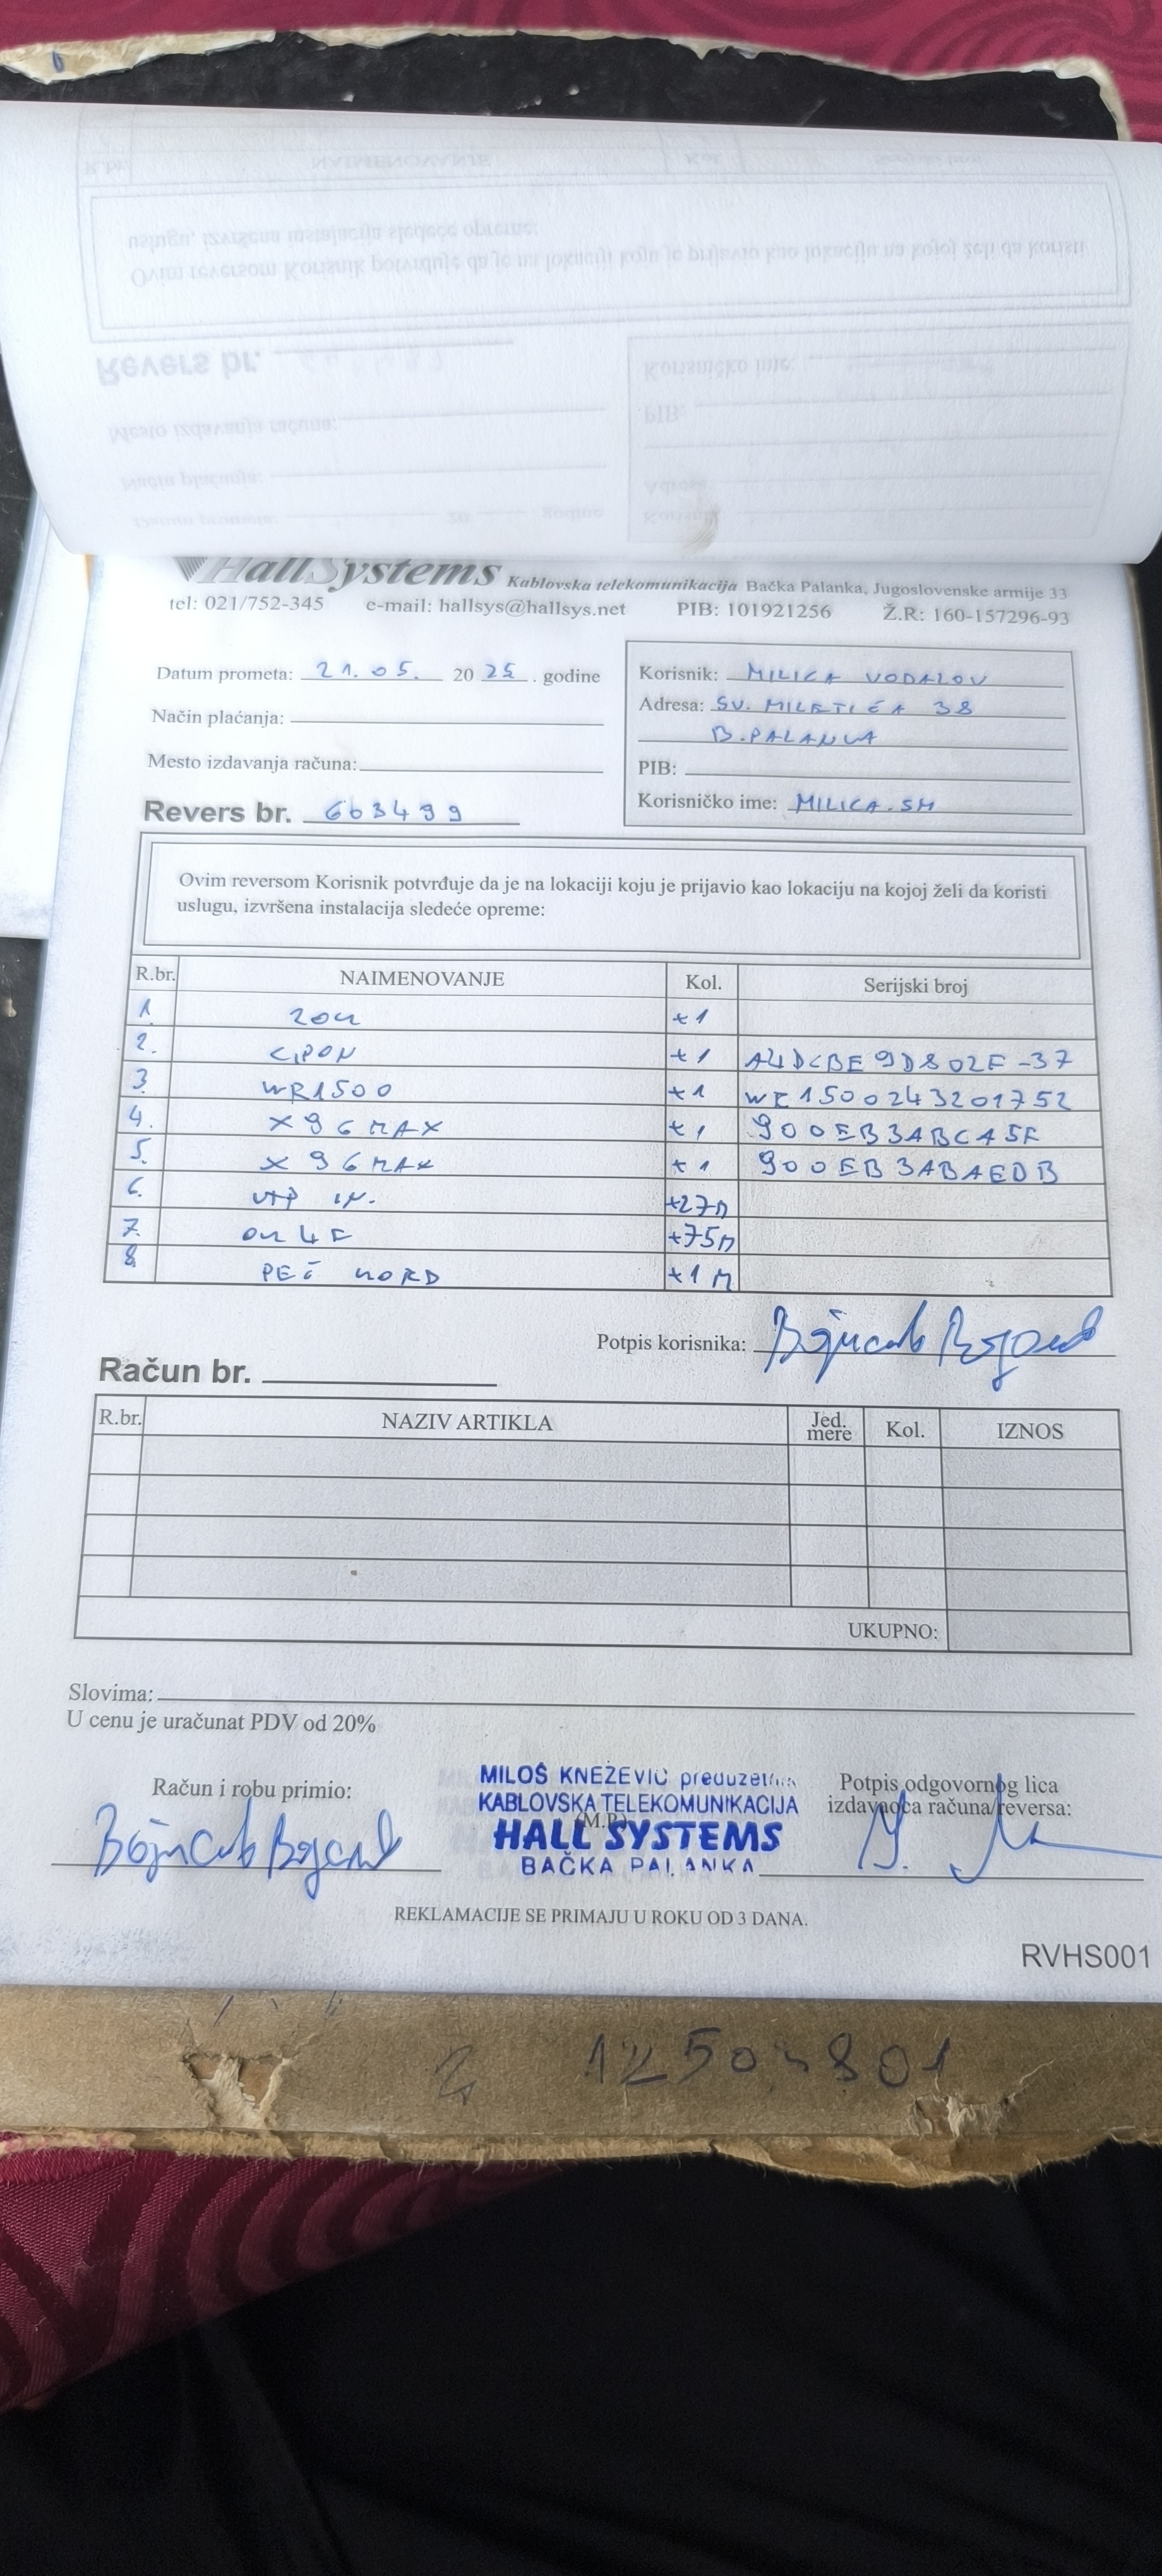 HallSystems Kablovska telekomunikacija Bačka Palanka, Jugoslovenske armije 33
tel: 021/752-345 e-mail: hallsys@hallsys.net PIB: 101921256 Ž.R: 160-157296-93
Datum prometa: 21.05. 2025. godine
Način plaćanja:
Mesto izdavanja računa:
Revers br. 663499
Korisnik: MILICA VODALOV
Adresa: SV. MILETIĆA 38
B. PALANKA
PIB:
Korisničko ime: MILICA.SM
Ovim reversom Korisnik potvrđuje da je na lokaciji koju je prijavio kao lokaciju na kojoj želi da koristi
uslugu, izvršena instalacija sledeće opreme:
R.br. NAIMENOVANJE Kol. Serijski broj
1. +1
2. GPON +1 A4DCBE9D802F-37
3. WR1500 +1 WR1500243201752
4. X96MAX +1 900EB3ABCA5F
5. X96MAX +1 900EB3ABAEDB
6. UTP IN. +27M
7. OK 4F +75M
8. PEČ KORD +1M
Potpis korisnika:
Račun br.
R.br. NAZIV ARTIKLA Jed. mere Kol. IZNOS
UKUPNO:
Slovima:
U cenu je uračunat PDV od 20%
Račun i robu primio:
MILOŠ KNEŽEVIĆ preduzetnik
KABLOVSKA TELEKOMUNIKACIJA
(M.P.)
HALL SYSTEMS
BAČKA PALANKA
Potpis odgovornog lica
izdavaoca računa/reversa:
REKLAMACIJE SE PRIMAJU U ROKU OD 3 DANA.
RVHS001